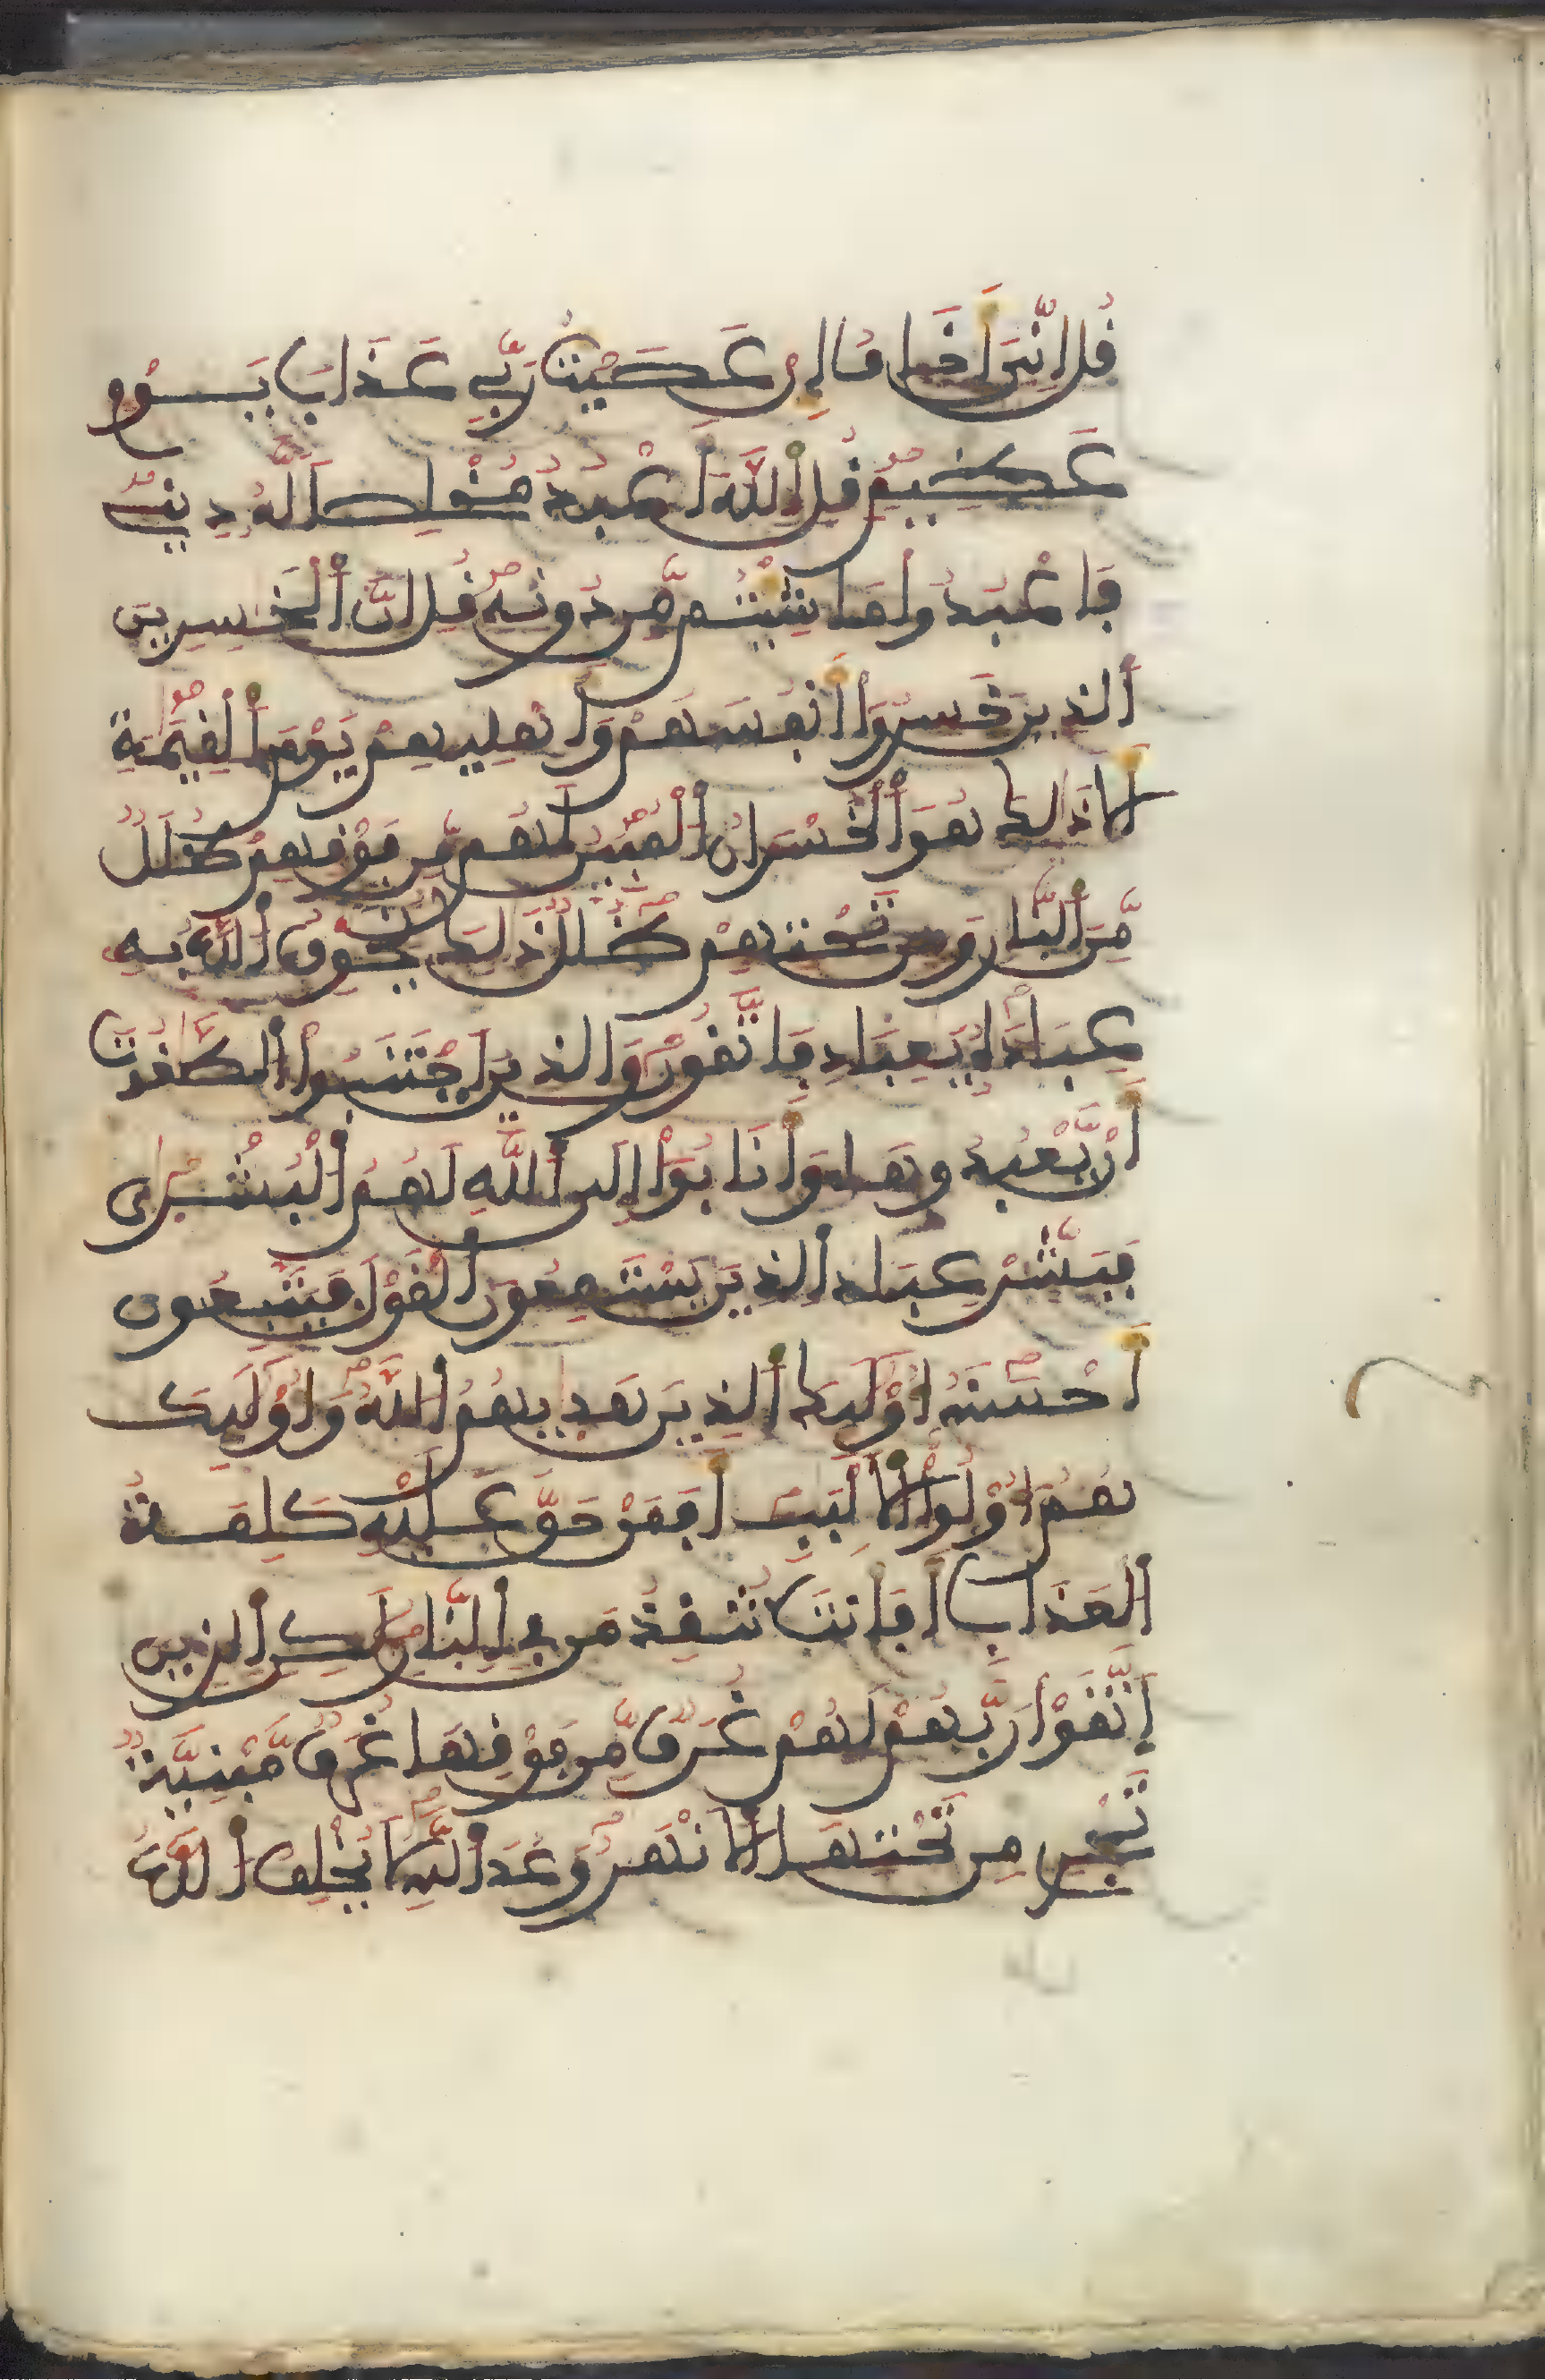 قُلِ انِّيَ أَخَافُ إِنْ عَصَيْتُ رَبِّي عَذَابَ يَوْمٍ
عَظِيمٍ قُلِ أللَّهَ أَعْبُدُ مُخْلِصاً لَّهُ دِينِے
فَاعْبُدُوا مَا شِئْتُم مِّن دُونِهِ قُلِ انَّ ألْخَسِرِينَ
ألذِينَ خَسِرُوا أَنفُسَهُمْ وَأَهْلِيهِمْ يَوْمَ ألْقِيَمَةِ
أَلَا ذَالِكَ هُوَ ألْخُسْرَانُ ألْمُبِينُ لَهُم مِّن فَوْقِهِمْ ظُلَلٌ
مِّنَ ألنَّارِ وَمِن تَحْتِهِمْ ظُلَلٌ ذَالِكَ يُخَوِّفُ أللَّهُ بِهِ
عِبَادَهُ يَعِبَادِ فَاتَّقُونِ وَالذِينَ اجْتَنَبُوا ألطَّغُوتَ
أَنْ يَّعْبُدُوهَا وَأَنَابُوا إِلَى أللَّهِ لَهُمُ ألْبُشْرَى
فَبَشِّرْ عِبَادِ ألذِينَ يَسْتَمِعُونَ ألْقَوْلَ فَيَتَّبِعُونَ
أَحْسَنَهُ أُوْلَئِكَ ألذِينَ هَدَيهُمُ أللَّهُ وَأُوْلَئِكَ
هُمُ أُوْلُوا ألْأَلْبَبِ أَفَمَنْ حَقَّ عَلَيْهِ كَلِمَةُ
ألْعَذَابِ أَفَأَنتَ تُنقِذُ مَن فِي ألنَّارِ لَكِنِ ألذِينَ
إَتَّقَوْا رَبَّهُمْ لَهُمْ غُرَفٌ مِّن فَوْقِهَا غُرَفٌ مَّبْنِيَّةٌ
تَجْرِي مِن تَحْتِهَا ألْأَنْهَرُ وَعْدَ أللَّهِ لَا يُخْلِفُ أللَّهُ